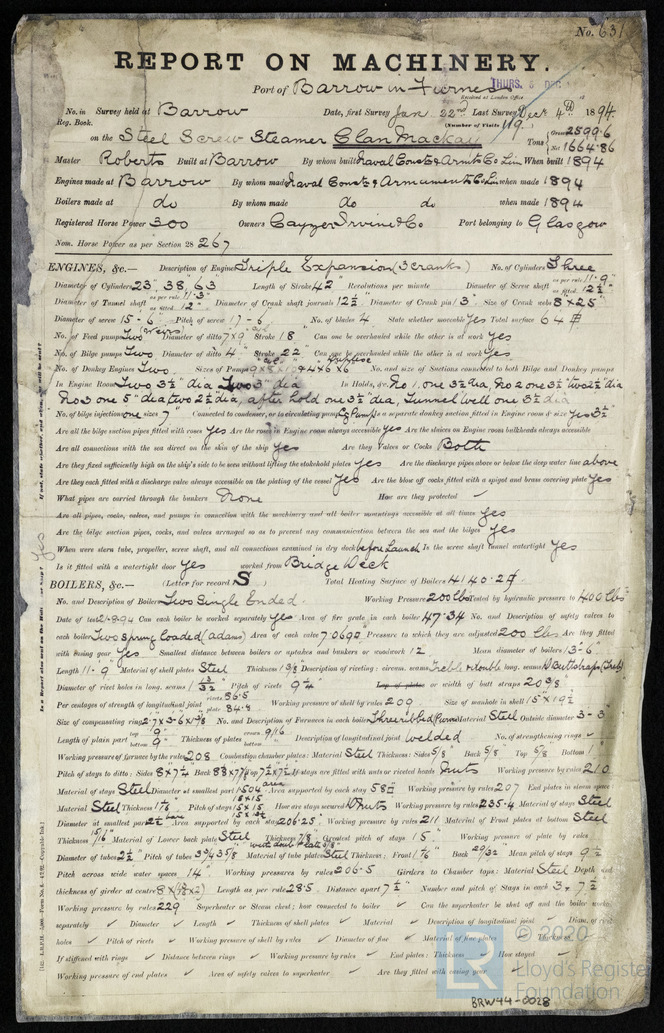 No. 631
REPORT ON MACHINERY.
Port of Barrow in Furness THURS. DEC
Received at London Office
No. in Survey held at Barrow Date, first Survey Jan. 22nd Last Survey Dec 4th 1894
Reg. Book. (Number of Visits 119)
on the Steel Screw Steamer Clan Mackay Tons Gross 2599.6 Net 1664.86
Master Roberts Built at Barrow By whom built Naval Constr & Armts Co Lim When built 1894
Engines made at Barrow By whom made Naval Constr & Armaments Co Lim when made 1894
Boilers made at do By whom made do do when made 1894
Registered Horse Power 300 Owners Cayzer Irvine & Co Port belonging to Glasgow
Nom. Horse Power as per Section 28 267
ENGINES, &c.— Description of Engines Triple Expansion (3 cranks) No. of Cylinders Three
Diameter of Cylinders 23", 38", 63" Length of Stroke 42" Revolutions per minute Diameter of Screw shaft as per rule 11.9" as fitted 12½"
Diameter of Tunnel shaft as per rule 11.3" as fitted 12" Diameter of Crank shaft journals 12½" Diameter of Crank pin 13" Size of Crank webs 8" x 25"
Diameter of screw 15-6" Pitch of screw 17-6" No. of blades 4 State whether moveable Yes Total surface 64
No. of Feed pumps Two (Weirs) Diameter of ditto 7 x 9" Stroke 18" Can one be overhauled while the other is at work yes
No. of Bilge pumps Two Diameter of ditto 4" Stroke 22 Can one be overhauled while the other is at work Yes
No. of Donkey Engines Two Sizes of Pumps No. and size of Suctions connected to both Bilge and Donkey pumps
In Engine Room Two 3½" dia Two 3" dia In Holds, &c. No 1, one 3½ dia, No 2 one 3½" two 2½" dia
No 3 one 5" dia two 2½ dia, after hold one 3½" dia, Tunnel well one 3½ dia
No. of bilge injections one sizes 7" Connected to condenser, or to circulating pump Cg Pump Is a separate donkey suction fitted in Engine room & size Yes 3½"
Are all the bilge suction pipes fitted with roses Yes Are the roses in Engine room always accessible Yes Are the sluices on Engine room bulkheads always accessible
Are all connections with the sea direct on the skin of the ship Yes Are they Valves or Cocks Both
Are they fixed sufficiently high on the ship's side to be seen without lifting the stokehold plates Yes Are the discharge pipes above or below the deep water line above
Are they each fitted with a discharge valve always accessible on the plating of the vessel Yes Are the blow off cocks fitted with a spigot and brass covering plate Yes
What pipes are carried through the bunkers None How are they protected ✓
Are all pipes, cocks, valves, and pumps in connection with the machinery and all boiler mountings accessible at all times Yes
Are the bilge suction pipes, cocks, and valves arranged so as to prevent any communication between the sea and the bilges Yes
When were stern tube, propeller, screw shaft, and all connections examined in dry dock before Launch Is the screw shaft tunnel watertight Yes
Is it fitted with a watertight door Yes worked from Bridge Deck
BOILERS, &c.— (Letter for record S) Total Heating Surface of Boilers 4140.2
No. and Description of Boilers Two Single Ended. Working Pressure 200 lbs Tested by hydraulic pressure to 400 lbs
Date of test 21.8.94 Can each boiler be worked separately yes Area of fire grate in each boiler 47.34 No. and Description of safety valves to
each boiler Two Spring loaded (adams) Area of each valve 7.069 Pressure to which they are adjusted 200 lbs Are they fitted
with easing gear Yes Smallest distance between boilers or uptakes and bunkers or woodwork 12 Mean diameter of boilers 13-6"
Length 11-9" Material of shell plates Steel Thickness 1 3/8 Description of riveting: circum. seams Treble & double long. seams D Buttstraps (Treb)
Diameter of rivet holes in long. seams 1 13/32" Pitch of rivets 9¼" Lap of plates or width of butt straps 20 3/8
Per centages of strength of longitudinal joint rivets 86.5 plate 84.8 Working pressure of shell by rules 209 Size of manhole in shell 15" x 19½"
Size of compensating ring 2-7 x 3-6 x 1 3/8 No. and Description of Furnaces in each boiler Three ribbed (Purves) Material Steel Outside diameter 3-3"
Length of plain part top 9" bottom 9" Thickness of plates crown 9/16" bottom Description of longitudinal joint welded No. of strengthening rings ✓
Working pressure of furnace by the rules 208 Combustion chamber plates: Material Steel Thickness: Sides 5/8" Back 5/8" Top 5/8" Bottom 1"
Pitch of stays to ditto: Sides 8 x 7¼ Back 8⅛ x 7¾ Top 7½ x 7½ If stays are fitted with nuts or riveted heads Nuts Working pressure by rules 210
Material of stays Steel Diameter at smallest part 1.504 area Area supported by each stay 58 Working pressure by rules 207 End plates in steam space:
Material Steel Thickness 1 1/8 Pitch of stays 15 x 15 How are stays secured D Nuts Working pressure by rules 235.4 Material of stays Steel
Diameter at smallest part 2½ Area supported by each stay 206.25 Working pressure by rules 211 Material of Front plates at bottom Steel
Thickness 15/16" Material of Lower back plate Steel Thickness 7/8 Greatest pitch of stays 15" Working pressure of plate by rules
Diameter of tubes 2½ Pitch of tubes 3¾ x 3 5/8 Material of tube plates Steel Thickness: Front 1 1/16" Back 29/32" Mean pitch of stays 9½
Pitch across wide water spaces 14" Working pressures by rules 206.5 Girders to Chamber tops: Material Steel Depth and
thickness of girder at centre 8 x Length as per rule 28.5 Distance apart 7½" Number and pitch of Stays in each 3, 7½
Working pressure by rules 229 Superheater or Steam chest; how connected to boiler ✓ Can the superheater be shut off and the boiler worked
separately ✓ Diameter ✓ Length ✓ Thickness of shell plates ✓ Material ✓ Description of longitudinal joint ✓ Diam. of rivet
holes ✓ Pitch of rivets ✓ Working pressure of shell by rules ✓ Diameter of flue ✓ Material of flue plates ✓ Thickness
If stiffened with rings ✓ Distance between rings ✓ Working pressure by rules ✓ End plates: Thickness ✓ How stayed
Working pressure of end plates ✓ Area of safety valves to superheater ✓ Are they fitted with easing gear ✓
© 2020
LR Lloyd's Register
Foundation
BRW44-0028